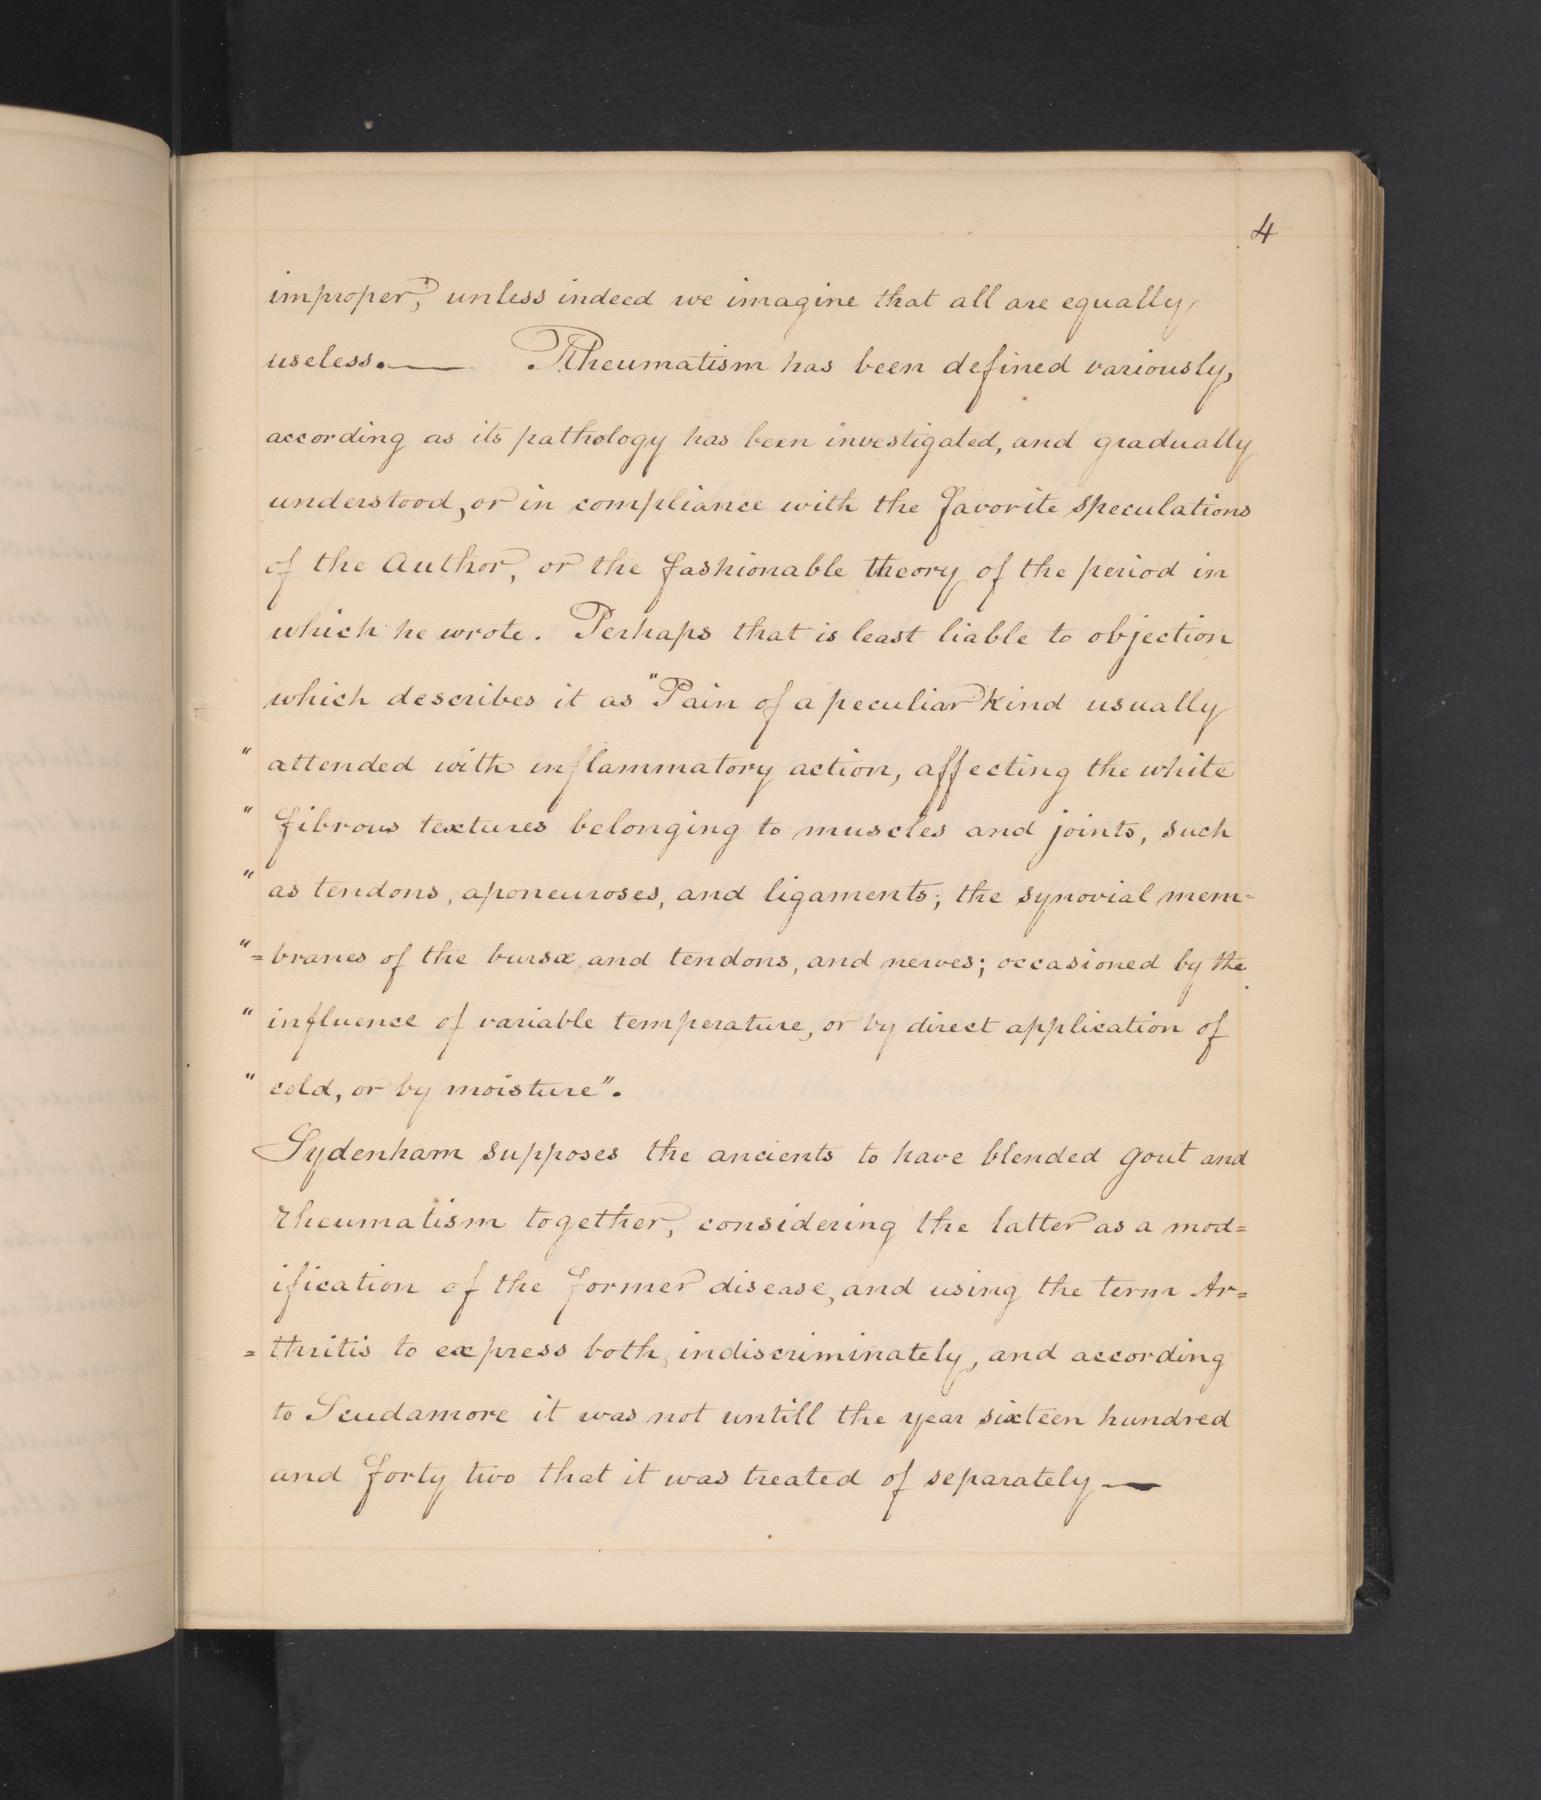 4
improper, unless indeed we imagine that all are equally
useless.— Rheumatism has been defined variously,
according as its pathology has been investigated, and gradually
understood, or in compliance with the favorite speculations
of the Author, or the fashionable theory of the period in
which he wrote. Perhaps that is least liable to objection
which describes it as "Pain of a peculiar kind usually
" attended with inflammatory action, affecting the white
" fibrous textures belonging to muscles and joints, such
" as tendons, aponeuroses, and ligaments; the synovial mem-
"=branes of the bursæ and tendons, and nerves; occasioned by the
" influence of variable temperature, or by direct application of
" cold, or by moisture".
Sydenham supposes the ancients to have blended gout and
rheumatism together, considering the latter as a mod=
ification of the former disease, and using the term Ar=
=thritis to express both, indiscriminately, and according
to Scudamore it was not untill the year sixteen hundred
and forty two that it was treated of separately —